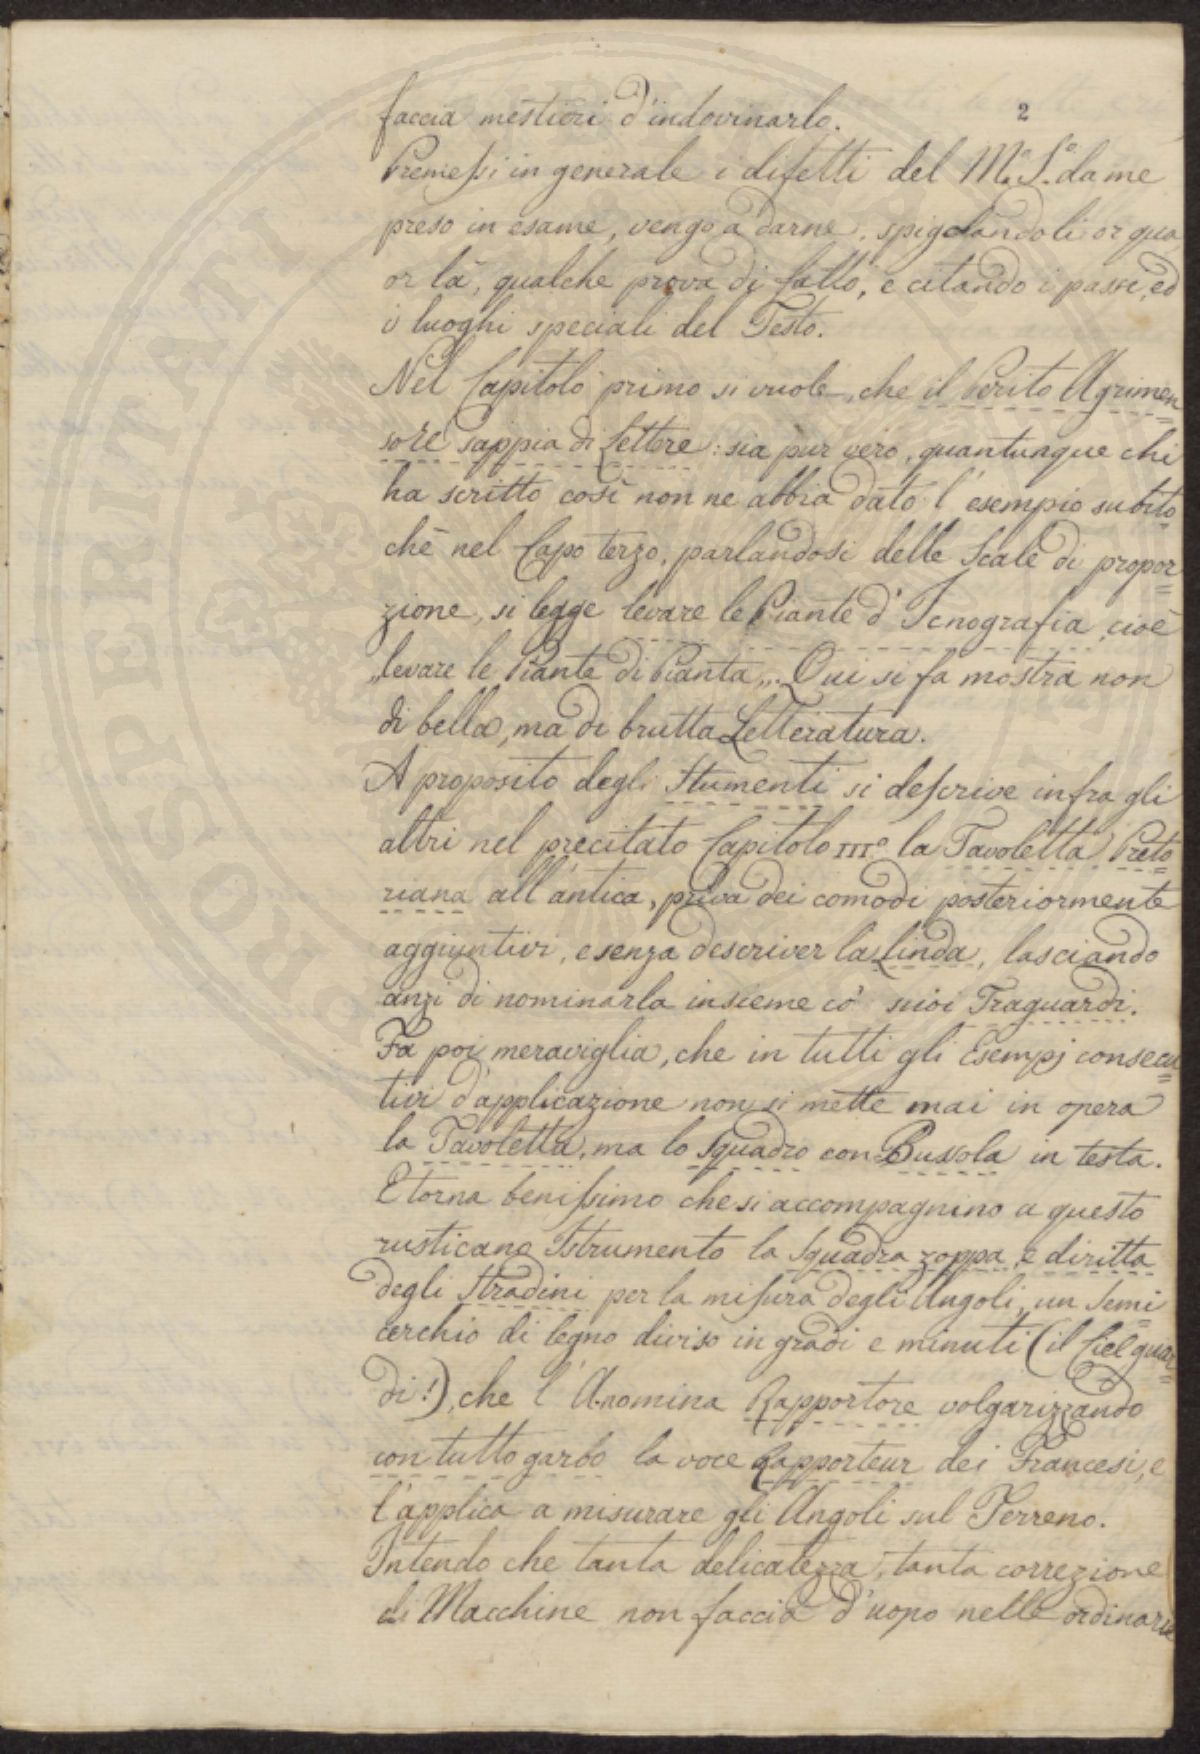 2
faccia mestieri d'indovinarlo.
Premessi in generale i difetti del M.o S.o da me
preso in esame, vengo a darne, spigolandoli or qua
or là, qualche prova di fatto, e citando i passi, ed
i luoghi speciali del Testo.
Nel Capitolo primo si vuole, che il Perito Agrimen=
sore sappia di Lettere: sia pur vero, quantunque chi
ha scritto così non ne abbia dato l'esempio subito
chè nel Capo terzo, parlandosi delle Scale di propor=
zione, si legge levare le Piante d'Icnografia, cioè
„levare le Piante di Pianta„. Qui si fa mostra non
di bella, ma di brutta Letteratura.
A proposito degli Stumenti si descrive infra gli
altri nel precitato Capitolo III.o la Tavoletta Preto
riana all'antica, priva dei comodi posteriormente
aggiuntivi, e senza descriver la Linda, lasciando
anzi di nominarla insieme co' suoi Traguardi.
Fa poi meraviglia, che in tutti gli Esempj consecu=
tivi d'applicazione non si mette mai in opera
la Tavoletta, ma lo Squadro con Bussola in testa.
E torna benissimo che si accompagnino a questo
rusticano Istrumento la Squadra zoppa, e diritta
degli Stradini per la misura degli Angoli, un Semi=
cerchio di legno diviso in gradi e minuti (il Ciel guar=
di!), che l'A. nomina Rapportore volgarizzando
con tutto garbo la voce Rapporteur dei Francesi, e
l'applica a misurare gli Angoli sul Terreno.
Intendo che tanta delicatezza, tanta correzione
di Macchine non faccia d'uopo nelle ordinarie
PROSPERITATI